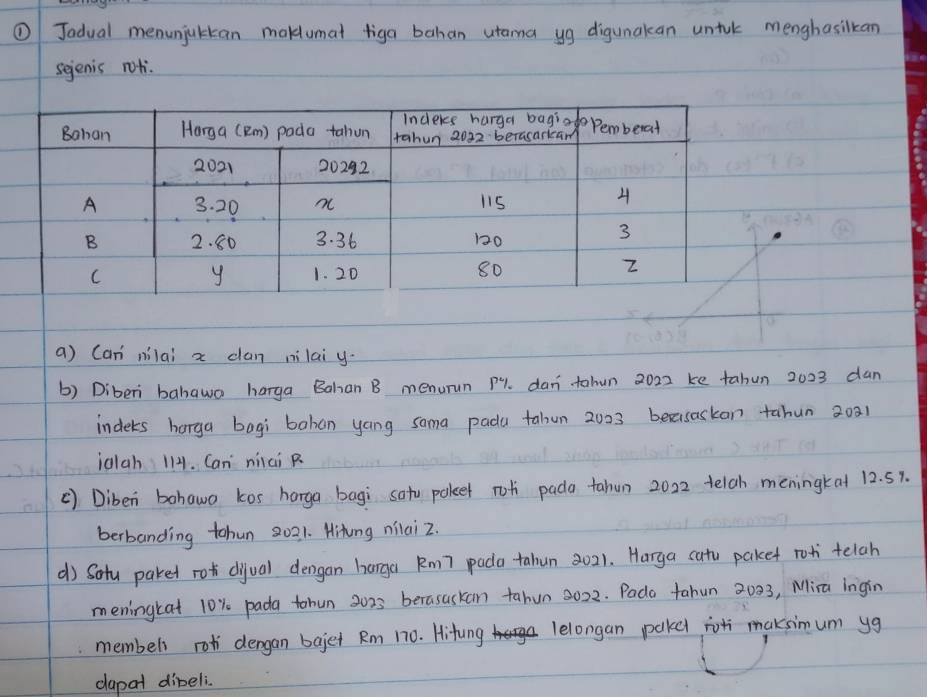 ① Jadual menunjukkan maklumat tiga bahan utama yg digunakan untuk menghasilkan
sejenis roti.
Bahan Harga (Rm) pada tahun Indeks harga bagi Pemberat
tahun 2022 berasarkan
2021 2022
A 3.20 x 115 4
B 2.80 3.36 120 3
C y 1.20 80 z
a) Cari nilai x dan nilai y.
b) Diberi bahawa harga Bahan B menurun P% dari tahun 2022 ke tahun 2023 dan
indeks harga bagi bahan yang sama pada tahun 2023 berasaskan tahun 2021
ialah 114. Cari nilai P.
c) Diberi bahawa kos harga bagi satu paket roti pada tahun 2022 telah meningkat 12.5%
berbanding tahun 2021. Hitung nilai z.
d) Satu paket roti dijual dengan harga Rm7 pada tahun 2021. Harga satu paket roti telah
meningkat 10% pada tahun 2023 berasaskan tahun 2022. Pada tahun 2023, Mira ingin
membeli roti dengan bajet Rm 170. Hitung lelongan paket roti maksimum yg
dapat dibeli.